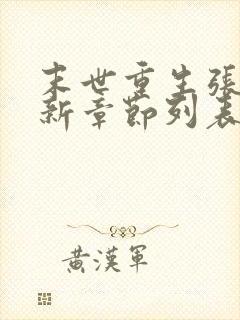 末世重生張
新章節列表
黄漢軍